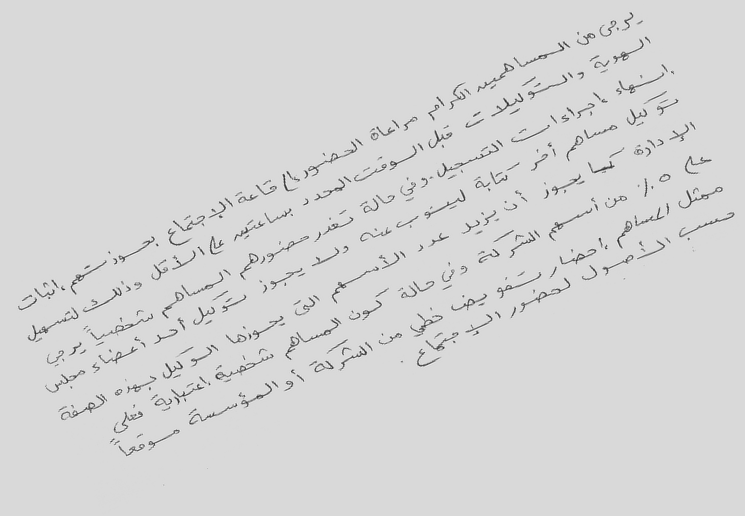 يرجى من المساهمين الكرام مراعاة الحضور على قاعة الإجتماع بحوزتهم اثبات
الهوية والتوكيلات قبل الوقت المحدد بساعتين على الأقل وذلك لتسهيل
انهاء اجراءات التسجيل. وفي حالة تعذر حضورهم المساهم شخصياً يرجي
توكيل مساهم أخر كتابة لينوب عنه ولا يجوز توكيل أحد أعضاء مجلس
الإدارة كما يجوز أن يزيد عدد الأسهم التي يحوزها الوكيل بهذه الصفة
على ٥٪ من أسهم الشركة وفي حالة كون المساهم شخصية اعتبارية فعلى
ممثل المساهم احضار تفويض خطي من الشركة أو المؤسسة موقعاً
حسب الأصول لحضور الإجتماع.